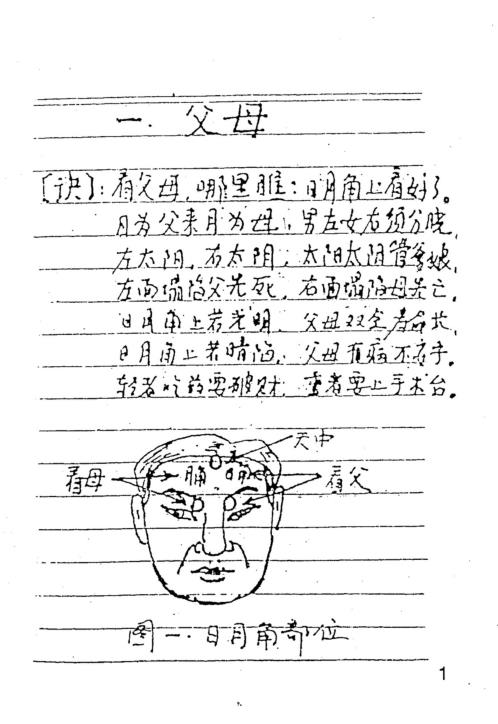 一.父母
[诀]:看父母,哪里瞧:日月角上看好了。
日为父来月为母,男左女右须分晓,
左太阳,右太阴,太阳太阴管爹娘,
左面塌陷父先死,右面塌陷母先亡,
日月角上若光明,父母双全寿命长,
日月角上若暗陷,父母有病不离手。
轻者吃药要破财,重者要上手术台。
天中
看母 月角 日角 看父
图一.日月角部位
1